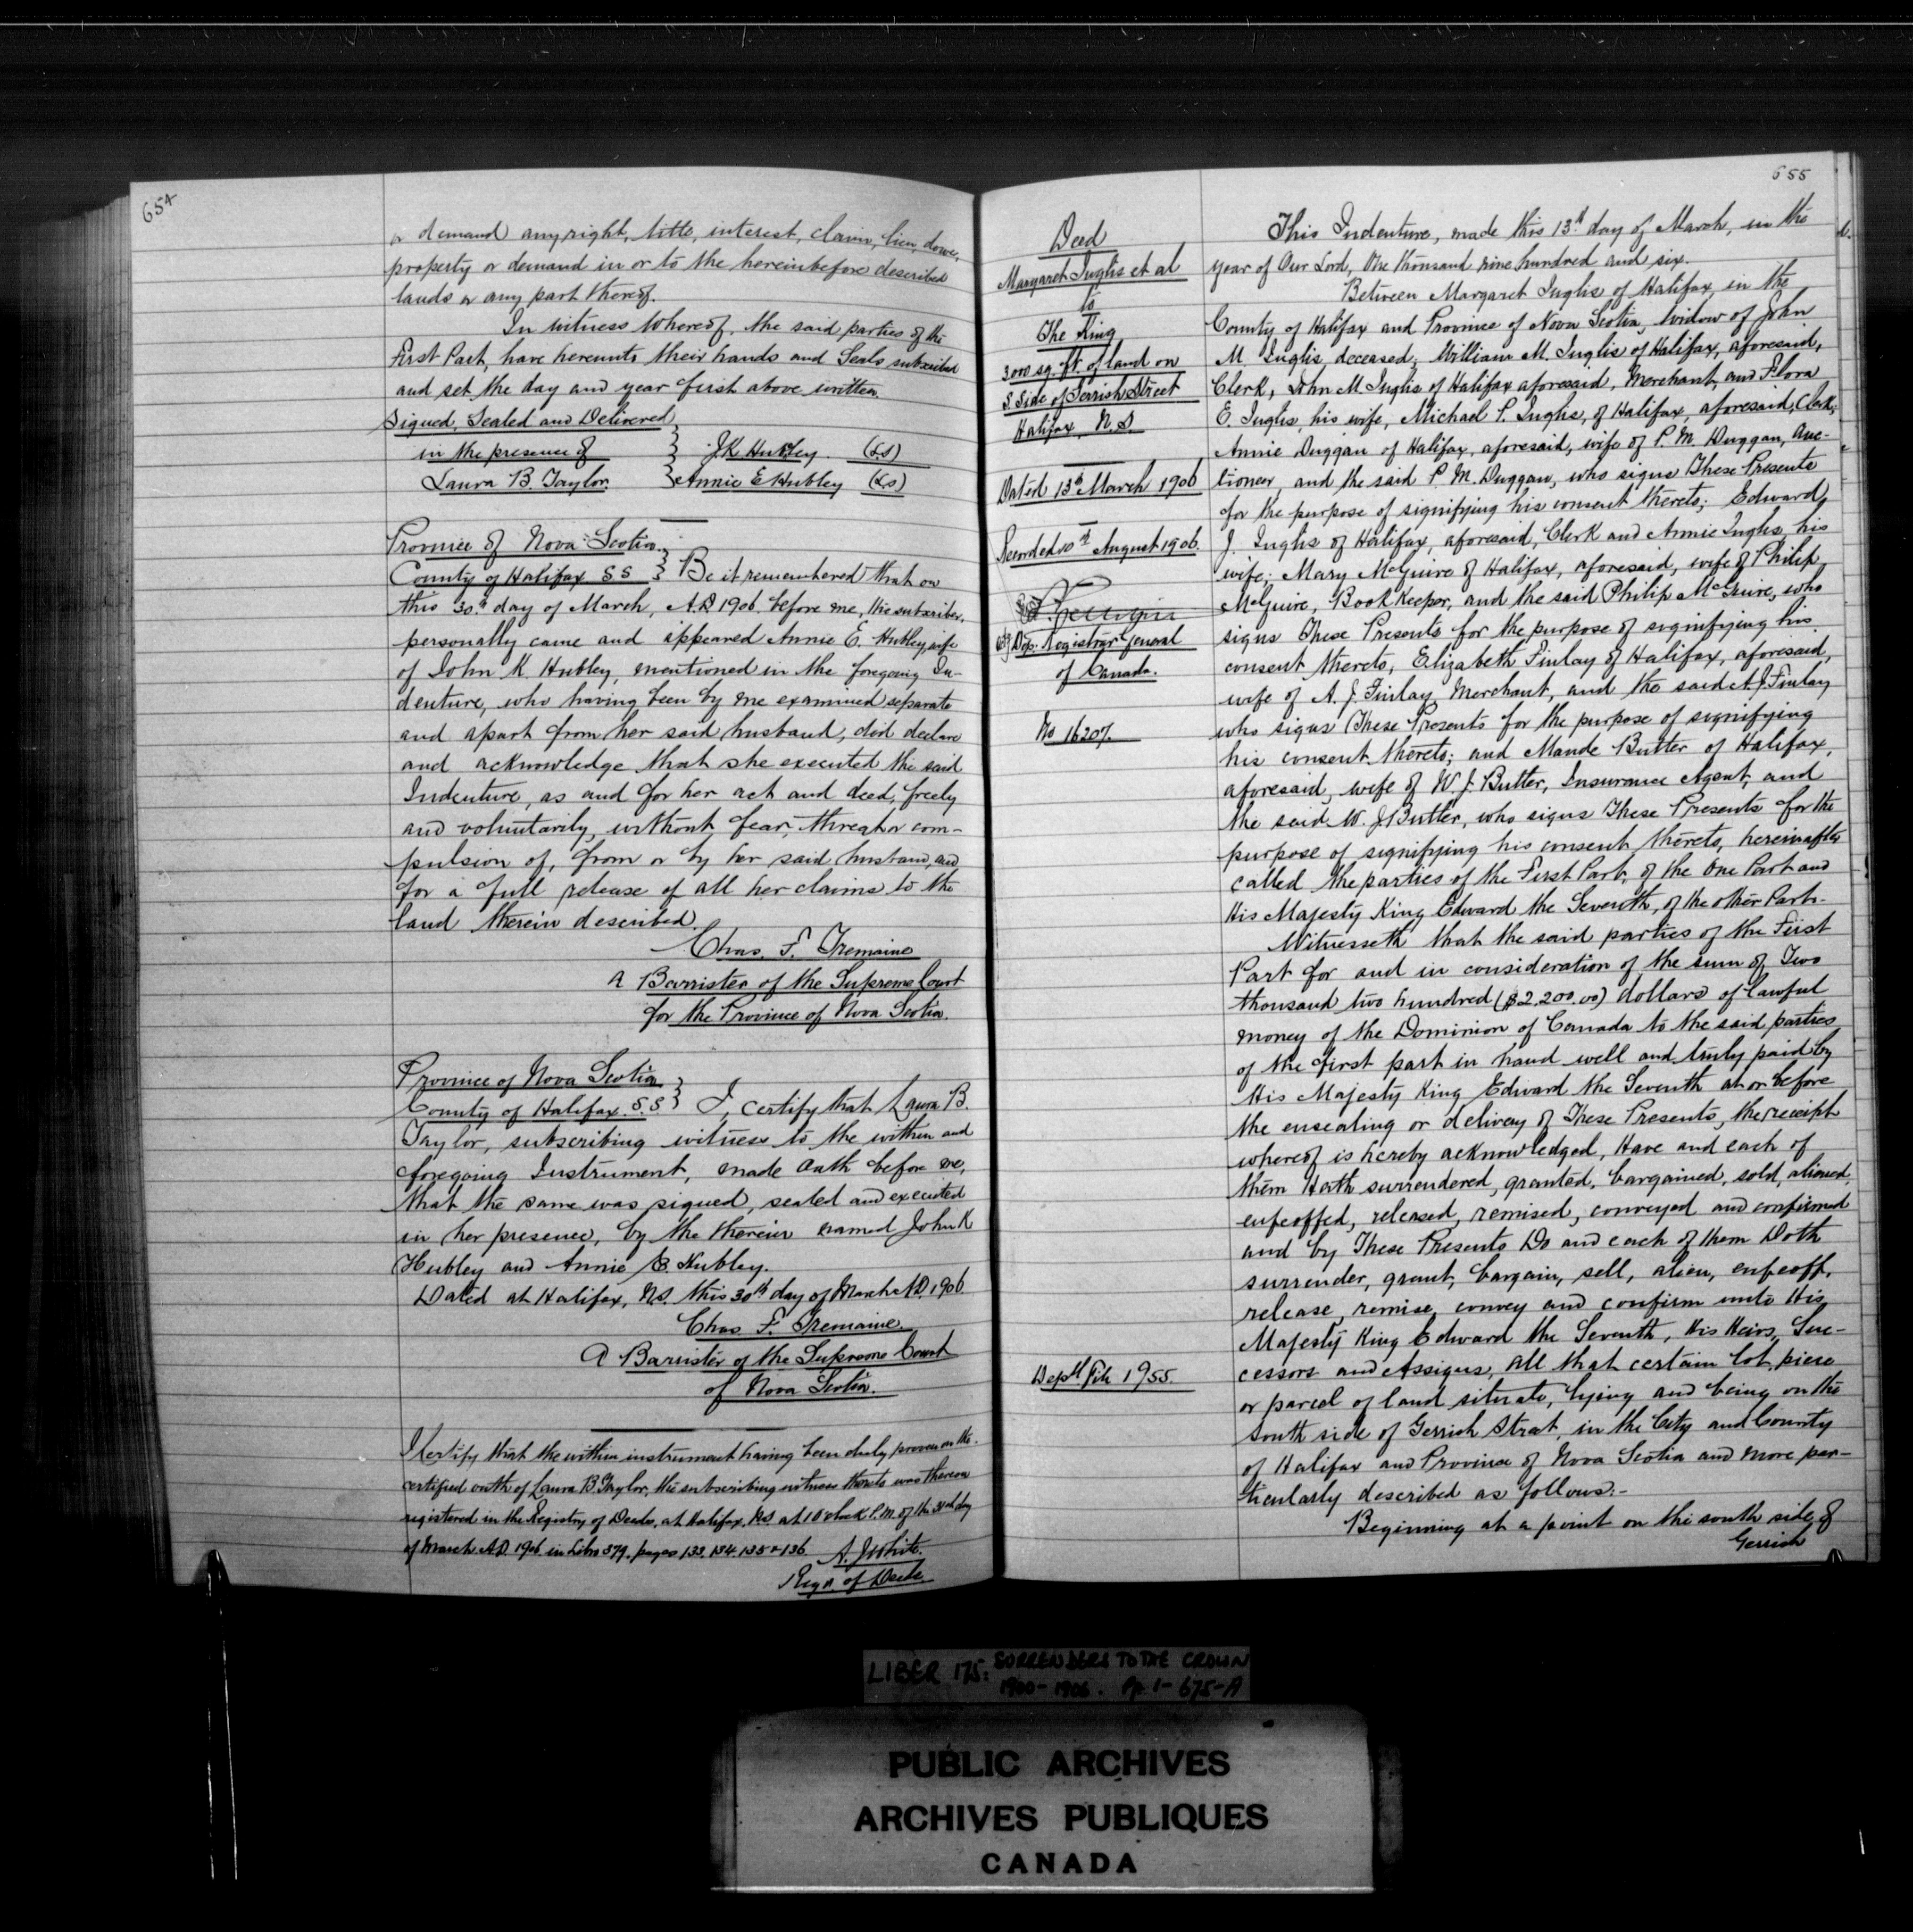 654
or demand any right, title, interest, claim, lien, dower,
property or demand in or to the hereinbefore described
lands or any part thereof.
In witness Whereof, the said parties of the
First Part, have hereunto their hands and Seals subscribed
and set the day and year first above written.
Signed, Sealed and Delivered
in the presence of } J.K Hubley. (L.S)
Laura B. Taylor } Annie E Hubley (L.S)
Province of Nova Scotia }
County of Halifax S S } Be it remembered that on
this 30th day of March, A.D. 1906. before me, the subscriber,
personally came and appeared Annie E. Hubley, wife
of John K Hubley, mentioned in the foregoing In-
denture, who having been by me examined separate
and apart from her said husband, did declare
and acknowledge that she executed the said
Indenture, as and for her act and deed, freely
and voluntarily, without fear, threat or com-
pulsion of, from or by her said husband, and
for a full release of all her claims to the
land therein described.
Chas. F. Tremaine
A Barrister of the Supreme Court
for the Province of Nova Scotia.
Province of Nova Scotia }
County of Halifax. S.S } I, certify that Laura B.
Taylor, subscribing witness to the within and
foregoing Instrument, made oath before me,
that the same was signed, sealed and executed
in her presence, by the therein named John K
Hubley and Annie E. Hubley.
Dated at Halifax, N.S. this 30th day of March A.D. 1906
Chas F. Tremaine
A Barrister of the Supreme Court
of Nova Scotia.
I Certify that the within instrument having been duly proven on the
certified oath of Laura B. Taylor, the subscribing witness thereto was thereon
registered in the Registry of Deeds, at Halifax, N.S at 1 O'clock P.M. of the day
of March A.D. 1906 in Libro 379. pages 133. 134. 135 & 136
A. J White.
Regr. of Deeds.
655
Deed
Margaret Inglis et al
to
The King
3000 sq. ft. of land on
S. Side of Gerrish Street
Halifax, N.S.
Dated 13th March 1906
Recorded 10th August 1906.
Dep. Registrar General
of Canada.
No 16207.
Deptl file 1955.
This Indenture, made this 13th day of March, in the
year of Our Lord, One thousand nine hundred and six.
Between Margaret Inglis of Halifax, in the
County of Halifax and Province of Nova Scotia, Widow of John
M. Inglis, deceased; William M. Inglis of Halifax, aforesaid,
Clerk, John M. Inglis of Halifax aforesaid, Merchant, and Flora
E. Inglis, his wife, Michael P. Inglis, of Halifax, aforesaid, Clerk;
Annie Duggan of Halifax, aforesaid, wife of P. M. Duggan, Auc-
tioneer, and the said P. M. Duggan, who signs These Presents
for the purpose of signifying his consent thereto; Edward
J. Inglis of Halifax, aforesaid, Clerk and Annie Inglis, his
wife; Mary McGuire of Halifax, aforesaid, wife of Philip
McGuire, Book Keeper, and the said Philip McGuire, who
signs These Presents for the purpose of signifying his
consent thereto, Elizabeth Finlay of Halifax, aforesaid,
wife of A. J. Finlay, Merchant, and the said A. J. Finlay
who signs These Presents for the purpose of signifying
his consent thereto; and Maude Butler of Halifax,
aforesaid, wife of W. J. Butler, Insurance Agent, and
the said W. J. Butler, who signs These Presents for the
purpose of signifying his consent thereto, hereinafter
called the parties of the First Part, of the One Part and
His Majesty King Edward the Seventh, of the other Part.
Witnesseth that the said parties of the First
Part for and in consideration of the sum of Two
thousand two hundred ($2,200.00) dollars of lawful
money of the Dominion of Canada to the said parties
of the first part in hand well and truly paid by
His Majesty King Edward the Seventh at or before
the ensealing or delivery of These Presents, the receipt
whereof is hereby acknowledged, Have and each of
them Hath surrendered, granted, bargained, sold, aliened,
enfeoffed, released, remised, conveyed and confirmed
and by These Presents Do and each of them Doth
surrender, grant, bargain, sell, alien, enfeoff,
release, remise, convey and confirm unto His
Majesty King Edward the Seventh, His Heirs, Suc-
cessors and Assigns, all that certain lot, piece
or parcel of land situate, lying and being on the
South side of Gerrish Street, in the City and County
of Halifax and Province of Nova Scotia and more par-
ticularly described as follows:-
Beginning at a point on the south side of
Gerrish
LIBER 175: SURRENDERS TO THE CROWN
1900-1906. Pp. 1-675-A
PUBLIC ARCHIVES
ARCHIVES PUBLIQUES
CANADA